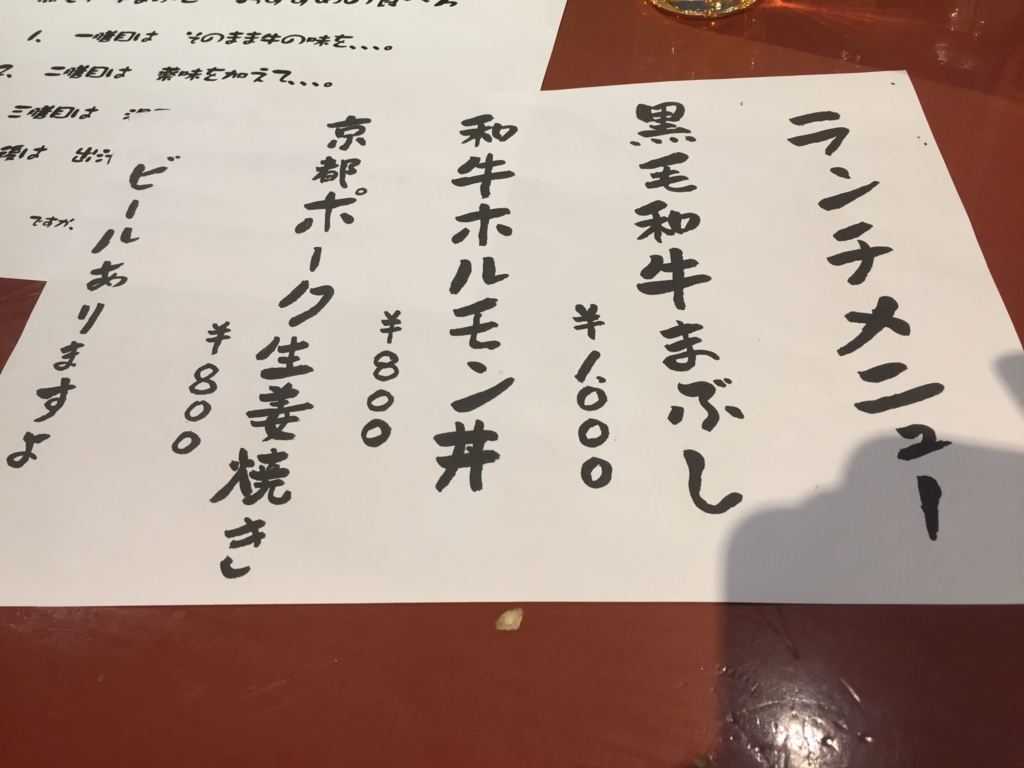 ランチメニュー
黒毛和牛まぶし
¥1,000
和牛ホルモン丼
¥800
京都ポーク生姜焼き
¥800
ビールありますよ
1. 一膳目は そのまま牛の味を、、、。
2. 二膳目は 薬味を加えて、、、。
三膳目は
後は 出汁
ですが、